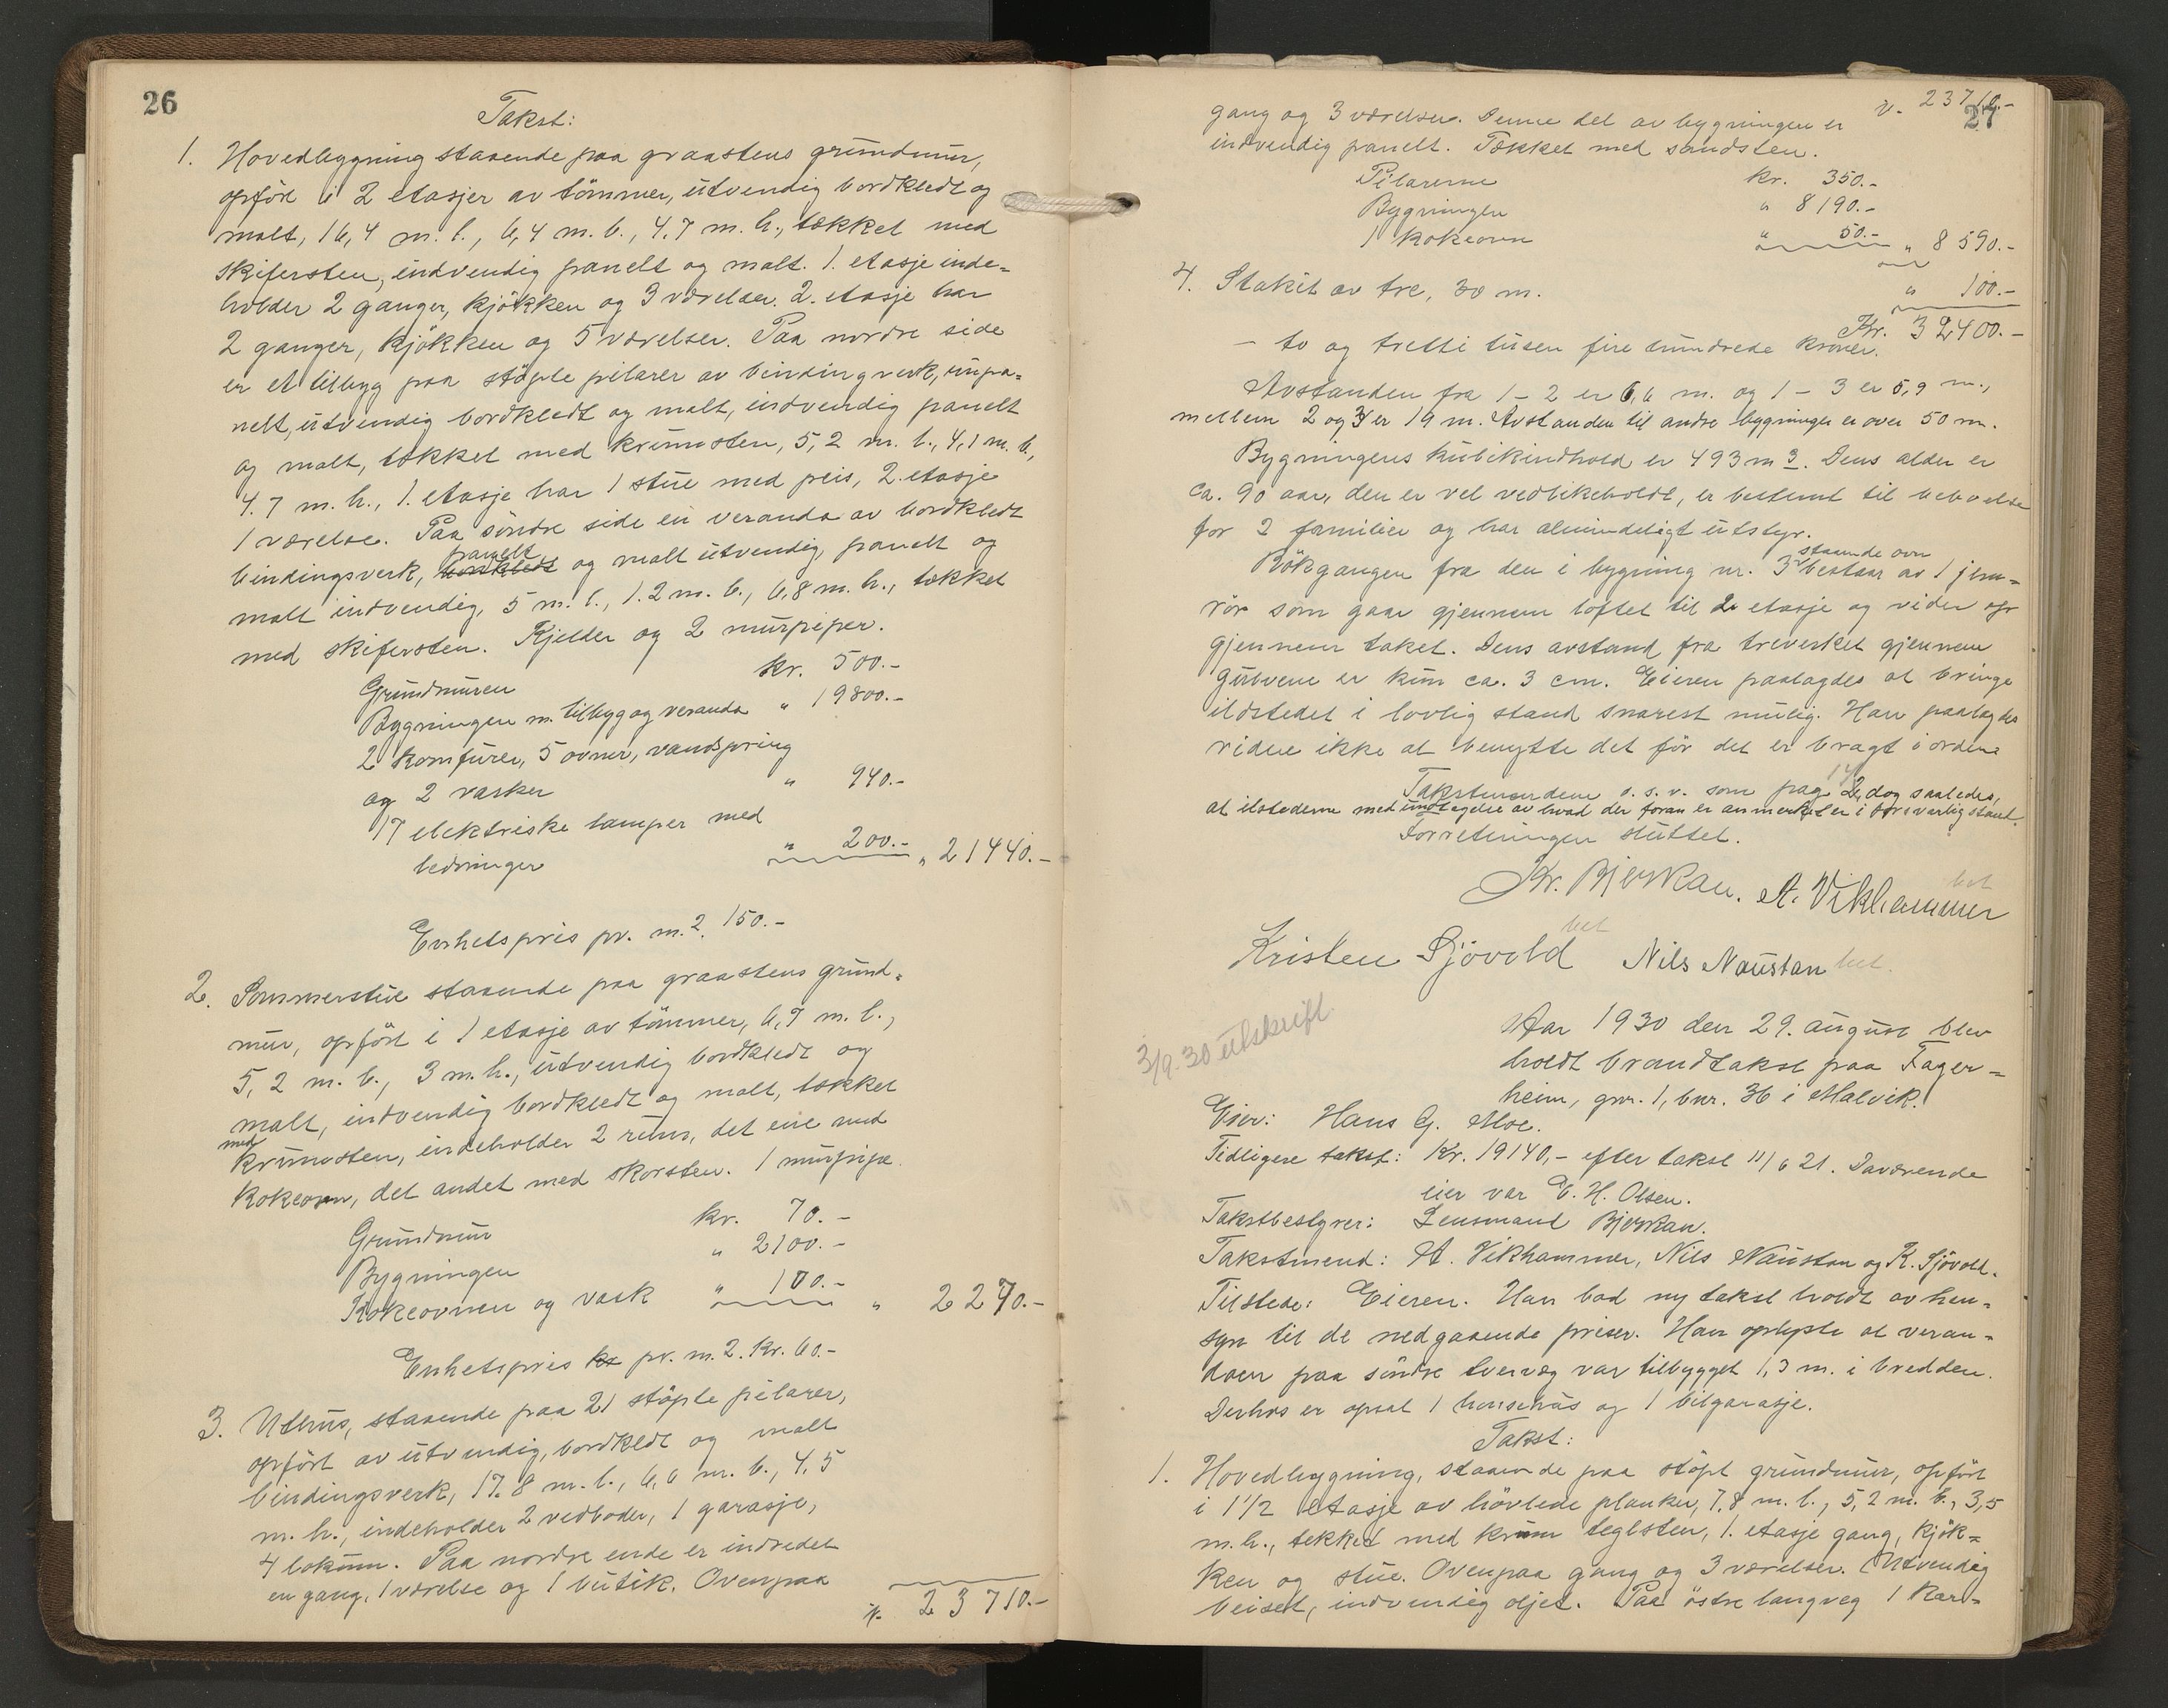 26
Takst:
1. Hovedbygning staaende paa graastens grundmur,
opført i 2 etasjer av tømmer, utvendig bordkledt og
malt, 16,4 m. l., 6,4 m. b., 4,7 m. h., tækket med
skifersten, indvendig panelt og malt. 1. etasje inde=
holder 2 ganger, kjøkken og 3 værelser. 2. etasje har
2 ganger, kjøkken og 5 værelser. Paa nordre side
er et tilbyg paa støpte pilarer av bindingverk, unpa=
nelt, utvendig bordkledt og malt, indvendig panelt
og malt, tækket med krumsten, 5,2 m. l., 4,1 m. b.,
4.7 m. h., 1. etasje har 1 stue med peis, 2. etasje
1 værelse. Paa søndre side en veranda av bordkledt
bindingsverk, panelt og malt utvendig, panelt og
malt indvendig, 5 m. l., 1.2 m. b., 6,8 m. h., tækket
med skifersten. Kjelder og 2 murpiper.
Grundmuren kr. 500.-
Bygningen m. tilbyg og veranda " 19800.-
2 komfurer, 5 ovner, vandspring
og 2 vasker " 940.-
17 elektriske lamper med
ledninger " 200.- " 21440.-
Enhetspris pr. m.2. 150.-
2. Sommerstue staaende paa graastens grund=
mur, opført i 1 etasje av tømmer, 6,7 m. l.,
5,2 m. b., 3 m. h., utvendig bordkledt og
malt, indvendig bordkledt og malt, tækket
med krumsten, indeholder 2 rum, det ene med
kokeovn, det andet med skorsten. 1 murpipe.
Grundmur kr. 70.-
Bygningen " 2100.-
Kokeovnen og vask " 100.- " 2270.-
Enhetspris kr pr. m.2. kr. 60.-
3. Uthus, staaende paa 21 støpte pilarer,
opført av utvendig, bordkledt og malt
bindingsverk, 17.8 m. l., 6,6 m. b., 4,5
m. h., indeholder 2 vedboder, 1 garasje,
4 lokum. Paa nordre ende er indredet
en gang, 1 værelse og 1 butik. Ovenpaa
23710.-
27
23710.-
gang og 3 værelser. Denne del av bygningen er
indvendig panelt. Tækket med sandsten.
Pilarerne kr. 350.-
Bygningen " 8190.-
1 kokeovn " 50.- " 8590.-
4. Stakit av tre, 30 m. " 100.-
Kr. 32400.-
- to og tretti tusen fire hundrede kroner.
Avstanden fra 1 - 2 er 6,6 m. og 1 - 3 er 5,9 m.,
mellem 2 og 3 er 19 m. Avstanden til andre bygninger er over 50 m.
Bygningens kubikindhold er 493 m3. Dens alder er
ca. 90 aar, den er vel vedlikeholdt, er bestemt til beboelse
for 2 familier og har almindeligt utstyr.
Røkgangen fra den i bygning nr. 3 staaende ovn bestaar av 1 jern=
rør som gaar gjennem loftet til 2 etasje og videre op
gjennem taket. Dens avstand fra treverket gjennem
gulvene er kun ca. 3 cm. Eieren paalagdes at bringe
ildstedet i lovlig stand snarest mulig. Han paalagdes
videre ikke at benytte det før det er bragt i orden.
Takstmændene o. s. v. som pag. 2, dog saaledes,
at ilstederne med undtagelse av hvad der foran er anmerket er i forsvarlig stand.
Forretningen sluttet.
Kr. Bjerkan. A. Vikhammer
Kristen Sjøvold Nils Naustan
3/9.30 utskrift.
Aar 1930 den 29. august blev
holdt brandtakst paa Fager=
heim, gnr. 1, bnr. 36 i Malvik.
Eier: Hans G. Moe.
Tidligere takst: Kr. 19140,- efter takst 11/6 21. Daværende
eier var E. H. Olsen.
Takstbestyrer: Lensmand Bjerkan.
Takstmend: A. Vikhammer, Nils Naustan og K. Sjøvold.
Tilstede: Eieren. Han bad ny takst holdt av hen=
syn til de nedgaaende priser. Han oplyste at veran=
daen paa søndre tverveg var tilbygget 1,3 m. i bredden.
Derhos er opsat 1 hønsehus og 1 bilgarasje.
Takst:
1. Hovedbygning, staaende paa støpt grundmur, opført
i 1 1/2 etasje av høvlede planker, 7,8 m. l., 5,2 m. b., 3,5
m. h., tekket med krum teglsten, 1. etasje gang, kjøk=
ken og stue. Ovenpaa gang og 3 værelser. Utvendig
beiset, indvendig oljet. Paa østre langveg 1 kar=